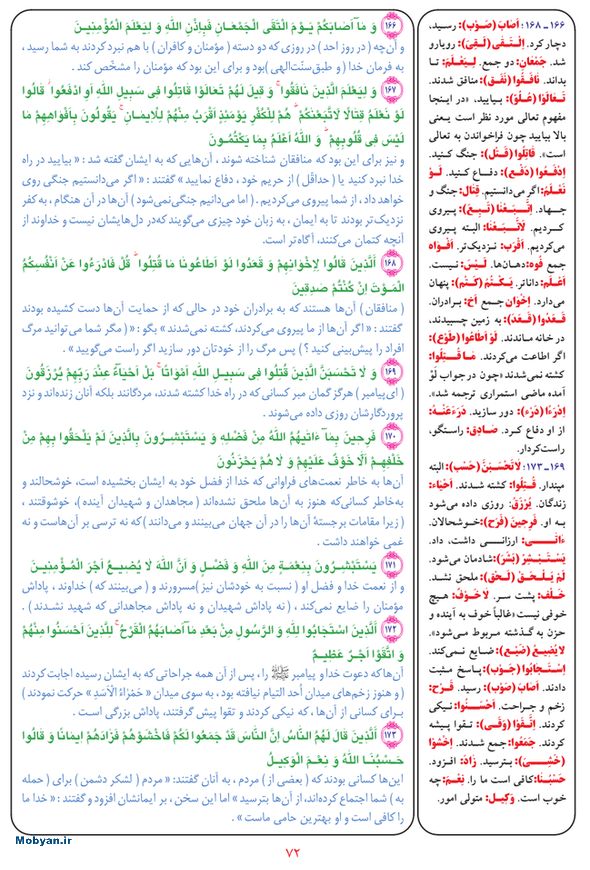 ۱۶۶ وَ مَآ اَصَابَكُمْ يَوْمَ الْتَقَى الْجَمْعَانِ فَبِإِذْنِ اللهِ وَ لِيَعْلَمَ الْمُؤْمِنِينَ
و آن‌چه ( در روز احد ) در روزی که دو دسته ( مؤمنان و کافران ) با هم نبرد کردند به شما رسید ،
به فرمان خدا ( و طبق سنّت الهی )بود و برای این بود که مؤمنان را مشخّص کند .
۱۶۷ وَ لِيَعْلَمَ الَّذِينَ نَافَقُوا وَ قِيلَ لَهُمْ تَعَالَوْا قَاتِلُوا فِى سَبِيلِ اللهِ أَوِ ادْفَعُوا قَالُوا
لَوْ نَعْلَمُ قِتَالًا لَاتَّبَعْنَاكُمْ هُمْ لِلْكُفْرِ يَوْمَئِذٍ أَقْرَبُ مِنْهُمْ لِلْإِيمَانِ يَقُولُونَ بِأَفْوَاهِهِمْ مَا
لَيْسَ فِى قُلُوبِهِمْ وَ اللهُ أَعْلَمُ بِمَا يَكْتُمُونَ
و نیز برای این بود که منافقان شناخته شوند ، آن‌هایی که به ایشان گفته شد : « بیایید در راه
خدا نبرد کنید یا ( حدّاقل ) از حریم خود ، دفاع نمایید » گفتند : « اگر می‌دانستیم جنگی روی
خواهد داد، از شما پیروی می‌کردیم . ( اما می‌دانیم جنگی‌نمی‌شود ) آن‌ها در آن هنگام ، به کفر
نزدیک‌تر بودند تا به ایمان ، به زبان خود چیزی می‌گویند که در دل‌هایشان نیست و خداوند از
آنچه کتمان می‌کنند، آگاه‌تر است
۱۶۸ اَلَّذِينَ قَالُوا لِاِخْوَانِهِمْ وَ قَعَدُوا لَوْ اَطَاعُونَا مَا قُتِلُوا قُلْ فَادْرَءُوا عَنْ اَنْفُسِكُمُ
الْمَوْتَ اِنْ كُنْتُمْ صَدِقِينَ
( منافقان ) آن‌ها هستند که به برادران خود در حالی که از حمایت آن‌ها دست کشیده بودند
گفتند : « اگر آن‌ها از ما پیروی می‌کردند، کشته نمی‌شدند » بگو : « ( مگر شما می‌توانید مرگ
افراد را پیش‌بینی کنید ؟ ) پس مرگ را از خودتان دور سازید اگر راست می‌گویید » .
۱۶۹ وَ لَا تَحْسَبَنَّ الَّذِينَ قُتِلُوا فِى سَبِيلِ اللهِ اَمْوَاتًا بَلْ اَحْيَاءٌ عِنْدَ رَبِّهِمْ يُرْزَقُونَ
(ای پیامبر ) هرگز گمان مبر کسانی که در راه خدا کشته شدند، مردگانند بلکه آنان زنده‌اند و نزد
پروردگارشان روزی داده می‌شوند .
۱۷۰ فَرِحِينَ بِمَآ ءَاتَيهُمُ اللهُ مِنْ فَضْلِهِ وَ يَسْتَبْشِرُونَ بِالَّذِينَ لَمْ يَلْحَقُوا بِهِمْ مِنْ
خَلْفِهِمْ اَلَّا خَوْفٌ عَلَيْهِمْ وَ لَا هُمْ يَحْزَنُونَ
آن‌ها به خاطر نعمت‌های فراوانی که خدا از فضل خود به ایشان بخشیده است، خوشحالند و
به‌خاطر کسانی‌که هنوز به آن‌ها ملحق نشده‌اند ( مجاهدان و شهیدان آینده )، خوشوقتند ،
( زیرا مقامات برجستهٔ آن‌ها را در آن جهان می‌بینند و می‌دانند ) که نه ترسی بر آن‌هاست و نه
غمی خواهند داشت .
۱۷۱ يَسْتَبْشِرُونَ بِنِعْمَةٍ مِنَ اللهِ وَ فَضْلٍ وَ اَنَّ اللهَ لَا يُضِيعُ اَجْرَ الْمُؤْمِنِينَ
و از نعمت خدا و فضل او ( نسبت به خودشان نیز )مسرورند و ( می‌بینند که ) خداوند ، پاداش
مؤمنان را ضایع نمی‌کند ، ( نه پاداش شهیدان و نه پاداش مجاهدانی که شهید نشدند ) .
۱۷۲ اَلَّذِينَ اسْتَجَابُوا لِلّهِ وَ الرَّسُولِ مِنْ بَعْدِ مَآ اَصَابَهُمُ الْقَرْحُ لِلَّذِينَ اَحْسَنُوا مِنْهُمْ
وَ اتَّقَوْا اَجْرٌ عَظِيمٌ
آن‌ها که دعوت خدا و پیامبر ﷺ را ، پس از آن همه جراحاتی که به ایشان رسیده اجابت کردند
( و هنوز زخم‌های میدان اُحد التیام نیافته بود ، به سوی میدان « حَمْرَاءُ الْاَسَدِ » حرکت نمودند )
بـرای کسانی از آن‌ها ، که نیکی کردند و تقوا پیش گرفتند، پاداش بزرگی است .
۱۷۳ اَلَّذِينَ قَالَ لَهُمُ النَّاسُ اِنَّ النَّاسَ قَدْ جَمَعُوا لَكُمْ فَاخْشَوْهُمْ فَزَادَهُمْ اِيمَانًا وَ قَالُوا
حَسْبُنَا اللهُ وَ نِعْمَ الْوَكِيلُ
این‌ها کسانی بودند که ( بعضی از ) مردم ، به آنان گفتند: « مردم ( لشکر دشمن ) برای ( حمله
به ) شما اجتماع کرده‌اند، از آن‌ها بترسید » اما این سخن ، بر ایمانشان افزود و گفتند : « خدا ما
را کافی است و او بهترین حامی ماست » .
۱۶۶ ـ ۱۶۸: اَصَابَ (صَوْب): رسید،
دچار کرد. اِلْتَقَى (لَقِیَ): رویارو
شد. جَمْعَانِ: دو جمع. لِيَعْلَمَ: تا
بداند. نَافَقُوا (نَفَق): منافق شدند.
تَعَالَوْا (عُلُوّ): بیایید، «در اینجا
مفهوم تعالی مورد نظر است یعنی
بالا بیایید چون فراخواندن به تعالی
است». قَاتِلُوا (قَتْل): جنگ کنید.
اِدْفَعُوا (دَفْع): دفاع کنید. لَوْ
نَعْلَمُ: اگر می‌دانستیم. قِتَال: جنگ و
جـهاد. اِتَّبَعْنَا (تَبِعَ): پیروی
کردیم. لَاتَّبَعْنَا: البته پیروی
می‌کردیم. اَقْرَب: نزدیک‌تر. اَفْوَاه
جمع فُوه: دهان‌ها. لَيْسَ: نیست.
اَعْلَم: داناتر. يَكْتُمُ (كَتْم): پنهان
می‌دارد. اِخْوَان جمع اَخ: برادران.
قَعَدُوا (قَعَدَ): به زمین چسبیدند،
در خانه ماندند. لَوْ اَطَاعُوا (طَوْع):
اگر اطاعت می‌کردند. مَا قُتِلُوا:
کشته نمی‌شدند «چون در جواب لَوْ
آمده ماضی استمراری ترجمه شد».
اِدْرَءُوا (دَرْء): دور سازید. دَرَءَ عَنْهُ:
از او دفاع کرد. صَادِق: راستگو،
راست‌کردار.
۱۶۹ ـ ۱۷۳: لَا تَحْسَبَنَّ (حَسْب): البته
مپندار. قُتِلُوا: کشته شدند. اَحْيَاء:
زندگان. يُرْزَقُ: روزی داده می‌شود
به او. فَرِحِينَ (فَرَح): خوشحالان.
ءَاتَـى: ارزانی داشت، داد.
يَسْتَبْشِرُ (بَشَرَ): شادمان می‌شود.
لَمْ يَلْحَقْ (لَحِق): ملحق نشد.
خَلْف: پشت سر. لَا خَوْفٌ: هیچ
خوفی نیست «غالباً خوف به آینده و
حزن به گذشته مربوط می‌شود».
لَا يُضِيعُ (ضَيْع): ضایع نمی‌کند.
اِسْتَجَابُوا (جَوْب): پاسخ مثبت
دادند. اَصَابَ (صَوْب): رسید. قَرْح:
زخم و جراحت. اَحْسَنُوا: نیکی
کردند. اِتَّقَوْا (وَقَى): تقوا پیشه
کردند. جَمَعُوا: جمع شدند. اِخْشَوْا
(خَشِیَ): بترسید. زَادَ: افزود.
حَسْبُنَا: کافی است ما را. نِعْمَ: چه
خوب است. وَكِيل: متولی امور.
Mobyan.ir
۷۲